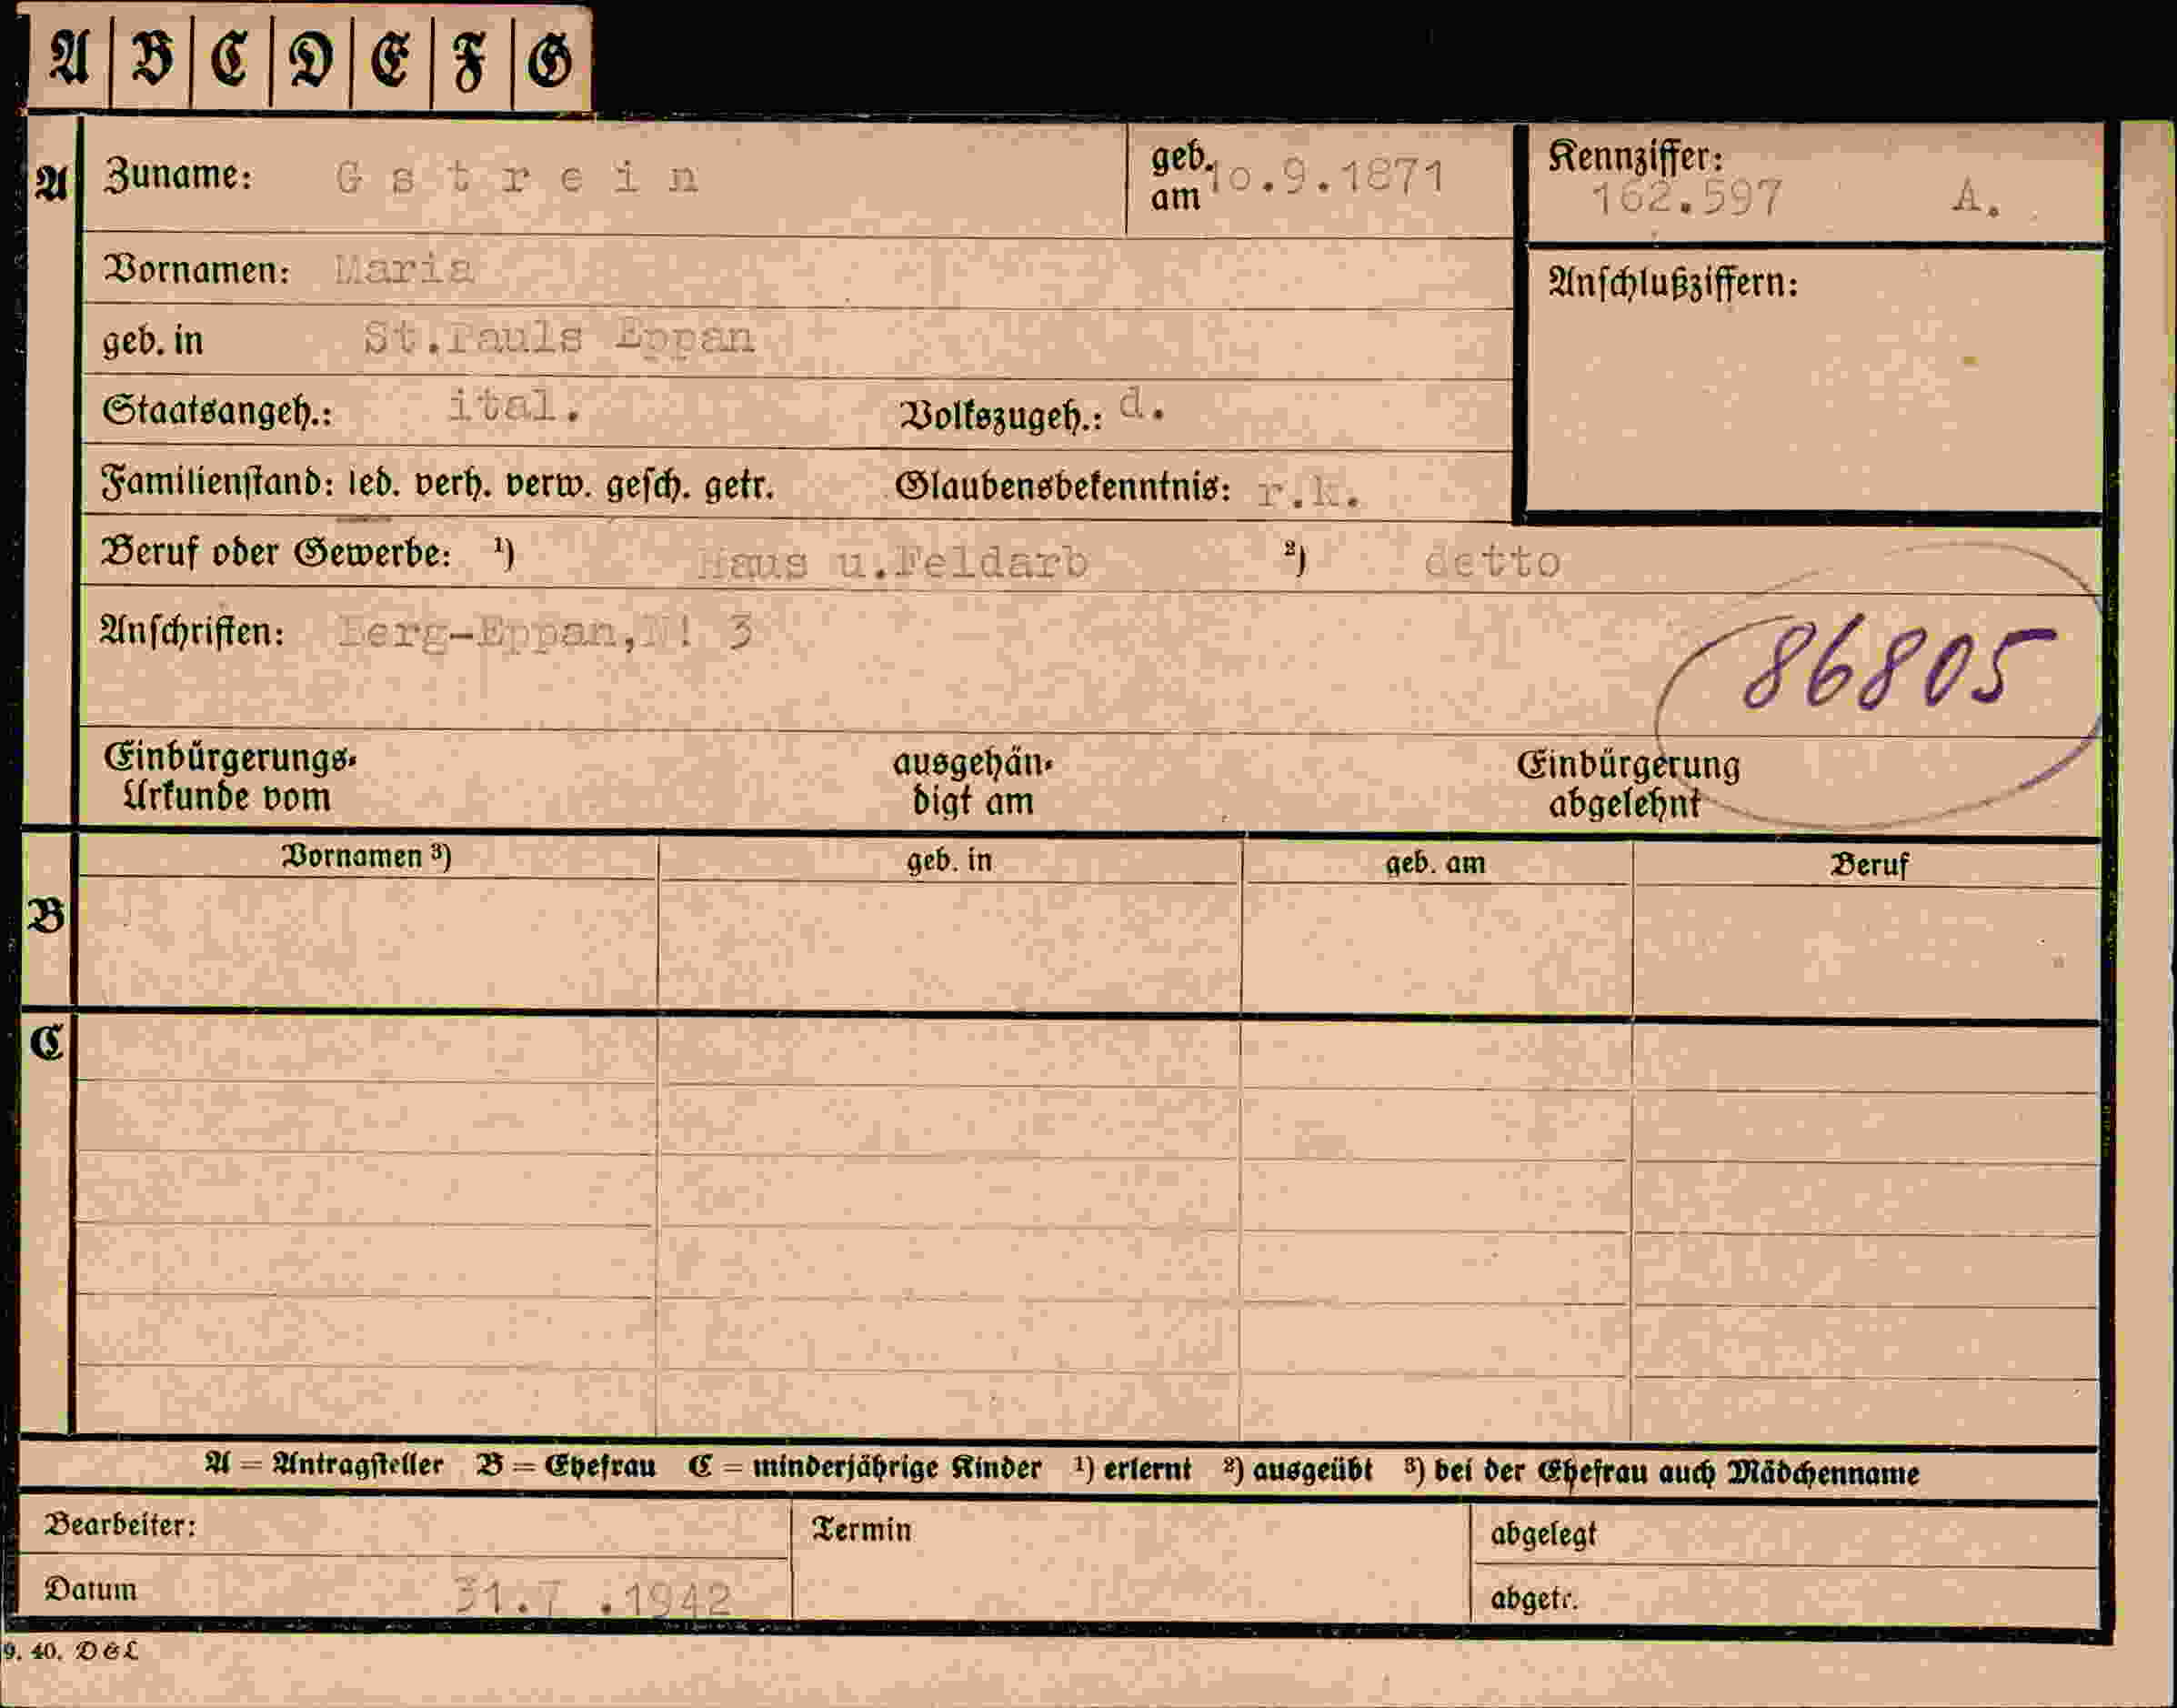 A B C D E F G
A Zuname: Gstrein geb. am 10.9.1871 Kennziffer: 162.597 A.
Vornamen: Maria Anschlußziffern:
geb. in St.Pauls Eppan
Staatsangeh.: ital. Volkszugeh.: d.
Familienstand: led. verh. verw. gesch. getr. Glaubensbekenntnis: r.k.
Beruf oder Gewerbe: ¹) Haus u.Feldarb ²) detto
Anschriften: Berg-Eppan,N! 3
86805
Einbürgerungs- ausgehän- Einbürgerung
Urkunde vom digt am abgelehnt
Vornamen ³) geb. in geb. am Beruf
B
C
A = Antragsteller B = Ehefrau C = minderjährige Kinder ¹) erlernt ²) ausgeübt ³) bei der Ehefrau auch Mädchenname
Bearbeiter: Termin abgelegt
Datum 31.7 .1942 abgetr.
9. 40. D&L